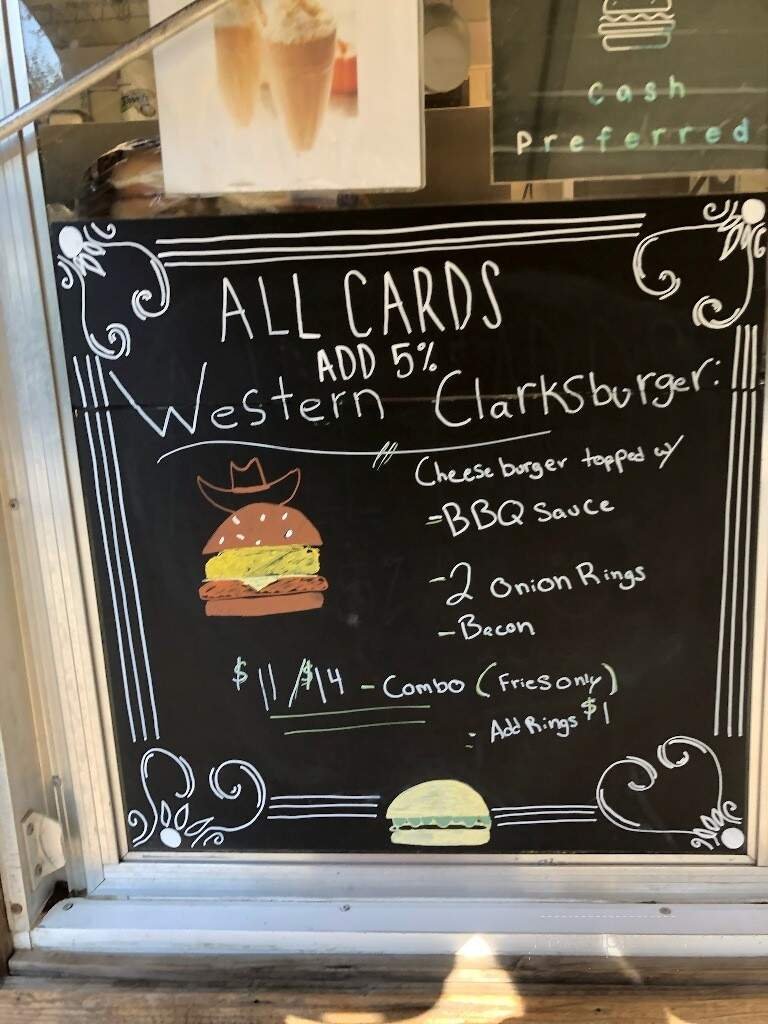 Cash
Preferred
ALL CARDS
ADD 5%
Western Clarksburger:
Cheese burger topped w/
- BBQ Sauce
- 2 Onion Rings
- Bacon
$11/$14 - Combo (Fries only)
- Add Rings $1